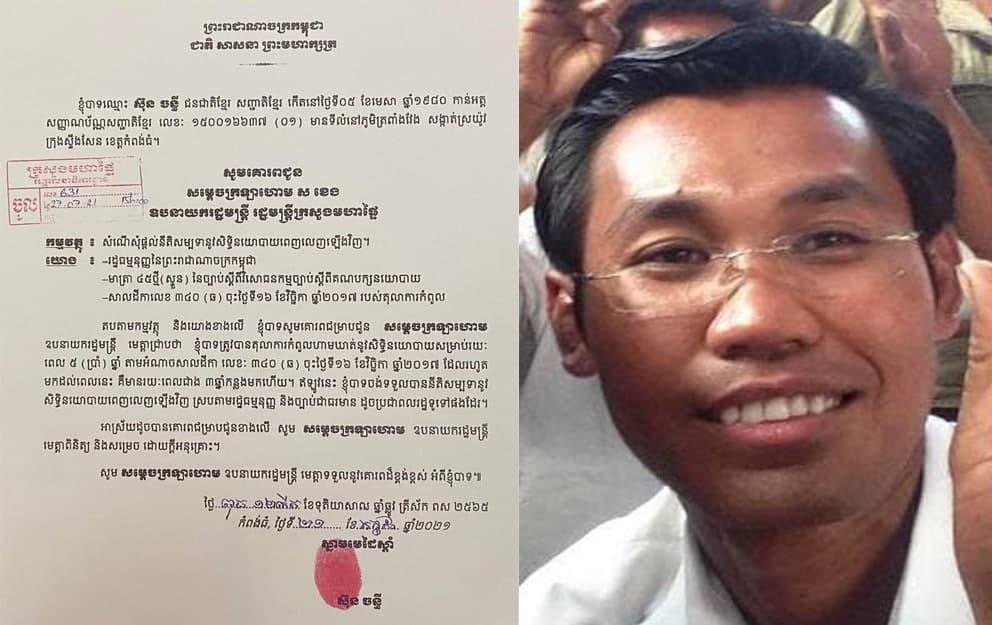 ព្រះរាជាណាចក្រកម្ពុជា
ជាតិ សាសនា ព្រះមហាក្សត្រ
ខ្ញុំបាទឈ្មោះ ស៊ុន ចន្ធី ជនជាតិខ្មែរ សញ្ជាតិខ្មែរ កើតនៅថ្ងៃទី០៥ ខែមេសា ឆ្នាំ១៩៨០ កាន់អត្ត
សញ្ញាណប័ណ្ណសញ្ជាតិខ្មែរ លេខៈ ១៥០០១៦៦៣៧ (០១) មានទីលំនៅភូមិត្រពាំងវែង សង្កាត់ស្រយ៉ូវ
ក្រុងស្ទឹងសែន ខេត្តកំពង់ធំ។
ក្រសួងមហាផ្ទៃ
ចូល
លេខ 631
27.07.21
សូមគោរពជូន
សម្តេចក្រឡាហោម ស ខេង
ឧបនាយករដ្ឋមន្ត្រី រដ្ឋមន្ត្រីក្រសួងមហាផ្ទៃ
កម្មវត្ថុ ៖ សំណើសុំផ្តល់នីតិសម្បទានូវសិទ្ធិនយោបាយពេញលេញឡើងវិញ។
យោង ៖ –រដ្ឋធម្មនុញ្ញនៃព្រះរាជាណាចក្រកម្ពុជា
–មាត្រា ៤៥ថ្មី(ស្ទួន) នៃច្បាប់ស្តីពីវិសោធនកម្មច្បាប់ស្តីពីគណបក្សនយោបាយ
–សាលដីកាលេខ ៣៤០ (ធ) ចុះថ្ងៃទី១៦ ខែវិច្ឆិកា ឆ្នាំ២០១៧ របស់តុលាការកំពូល
តបតាមកម្មវត្ថុ និងយោងខាងលើ ខ្ញុំបាទសូមគោរពជម្រាបជូន សម្តេចក្រឡាហោម
ឧបនាយករដ្ឋមន្ត្រី មេត្តាជ្រាបថា ខ្ញុំបាទត្រូវបានតុលាការកំពូលហាមឃាត់នូវសិទ្ធិនយោបាយសម្រាប់រយៈ
ពេល ៥ (ប្រាំ) ឆ្នាំ តាមអំណាចសាលដីកា លេខៈ ៣៤០ (ធ) ចុះថ្ងៃទី១៦ ខែវិច្ឆិកា ឆ្នាំ២០១៧ ដែលរហូត
មកដល់ពេលនេះ គឺមានរយៈពេលជាង ៣ឆ្នាំកន្លងមកហើយ។ ឥឡូវនេះ ខ្ញុំបាទចង់ទទួលបាននីតិសម្បទានូវ
សិទ្ធិនយោបាយពេញលេញឡើងវិញ ស្របតាមរដ្ឋធម្មនុញ្ញ និងច្បាប់ជាធរមាន ដូចប្រជាពលរដ្ឋទូទៅផងដែរ។
អាស្រ័យដូចបានគោរពជម្រាបជូនខាងលើ សូម សម្តេចក្រឡាហោម ឧបនាយករដ្ឋមន្ត្រី
មេត្តាពិនិត្យ និងសម្រេច ដោយក្តីអនុគ្រោះ។
សូម សម្តេចក្រឡាហោម ឧបនាយករដ្ឋមន្ត្រី មេត្តាទទួលនូវគោរពដ៏ខ្ពង់ខ្ពស់ អំពីខ្ញុំបាទ៕
ថ្ងៃ ខែទុតិយាសាឍ ឆ្នាំឆ្លូវ ត្រីស័ក ពស ២៥៦៥
កំពង់ធំ, ថ្ងៃទី ២១ ខែ កក្កដា ឆ្នាំ២០២១
ស្នាមមេដៃស្តាំ
ស៊ុន ចន្ធី